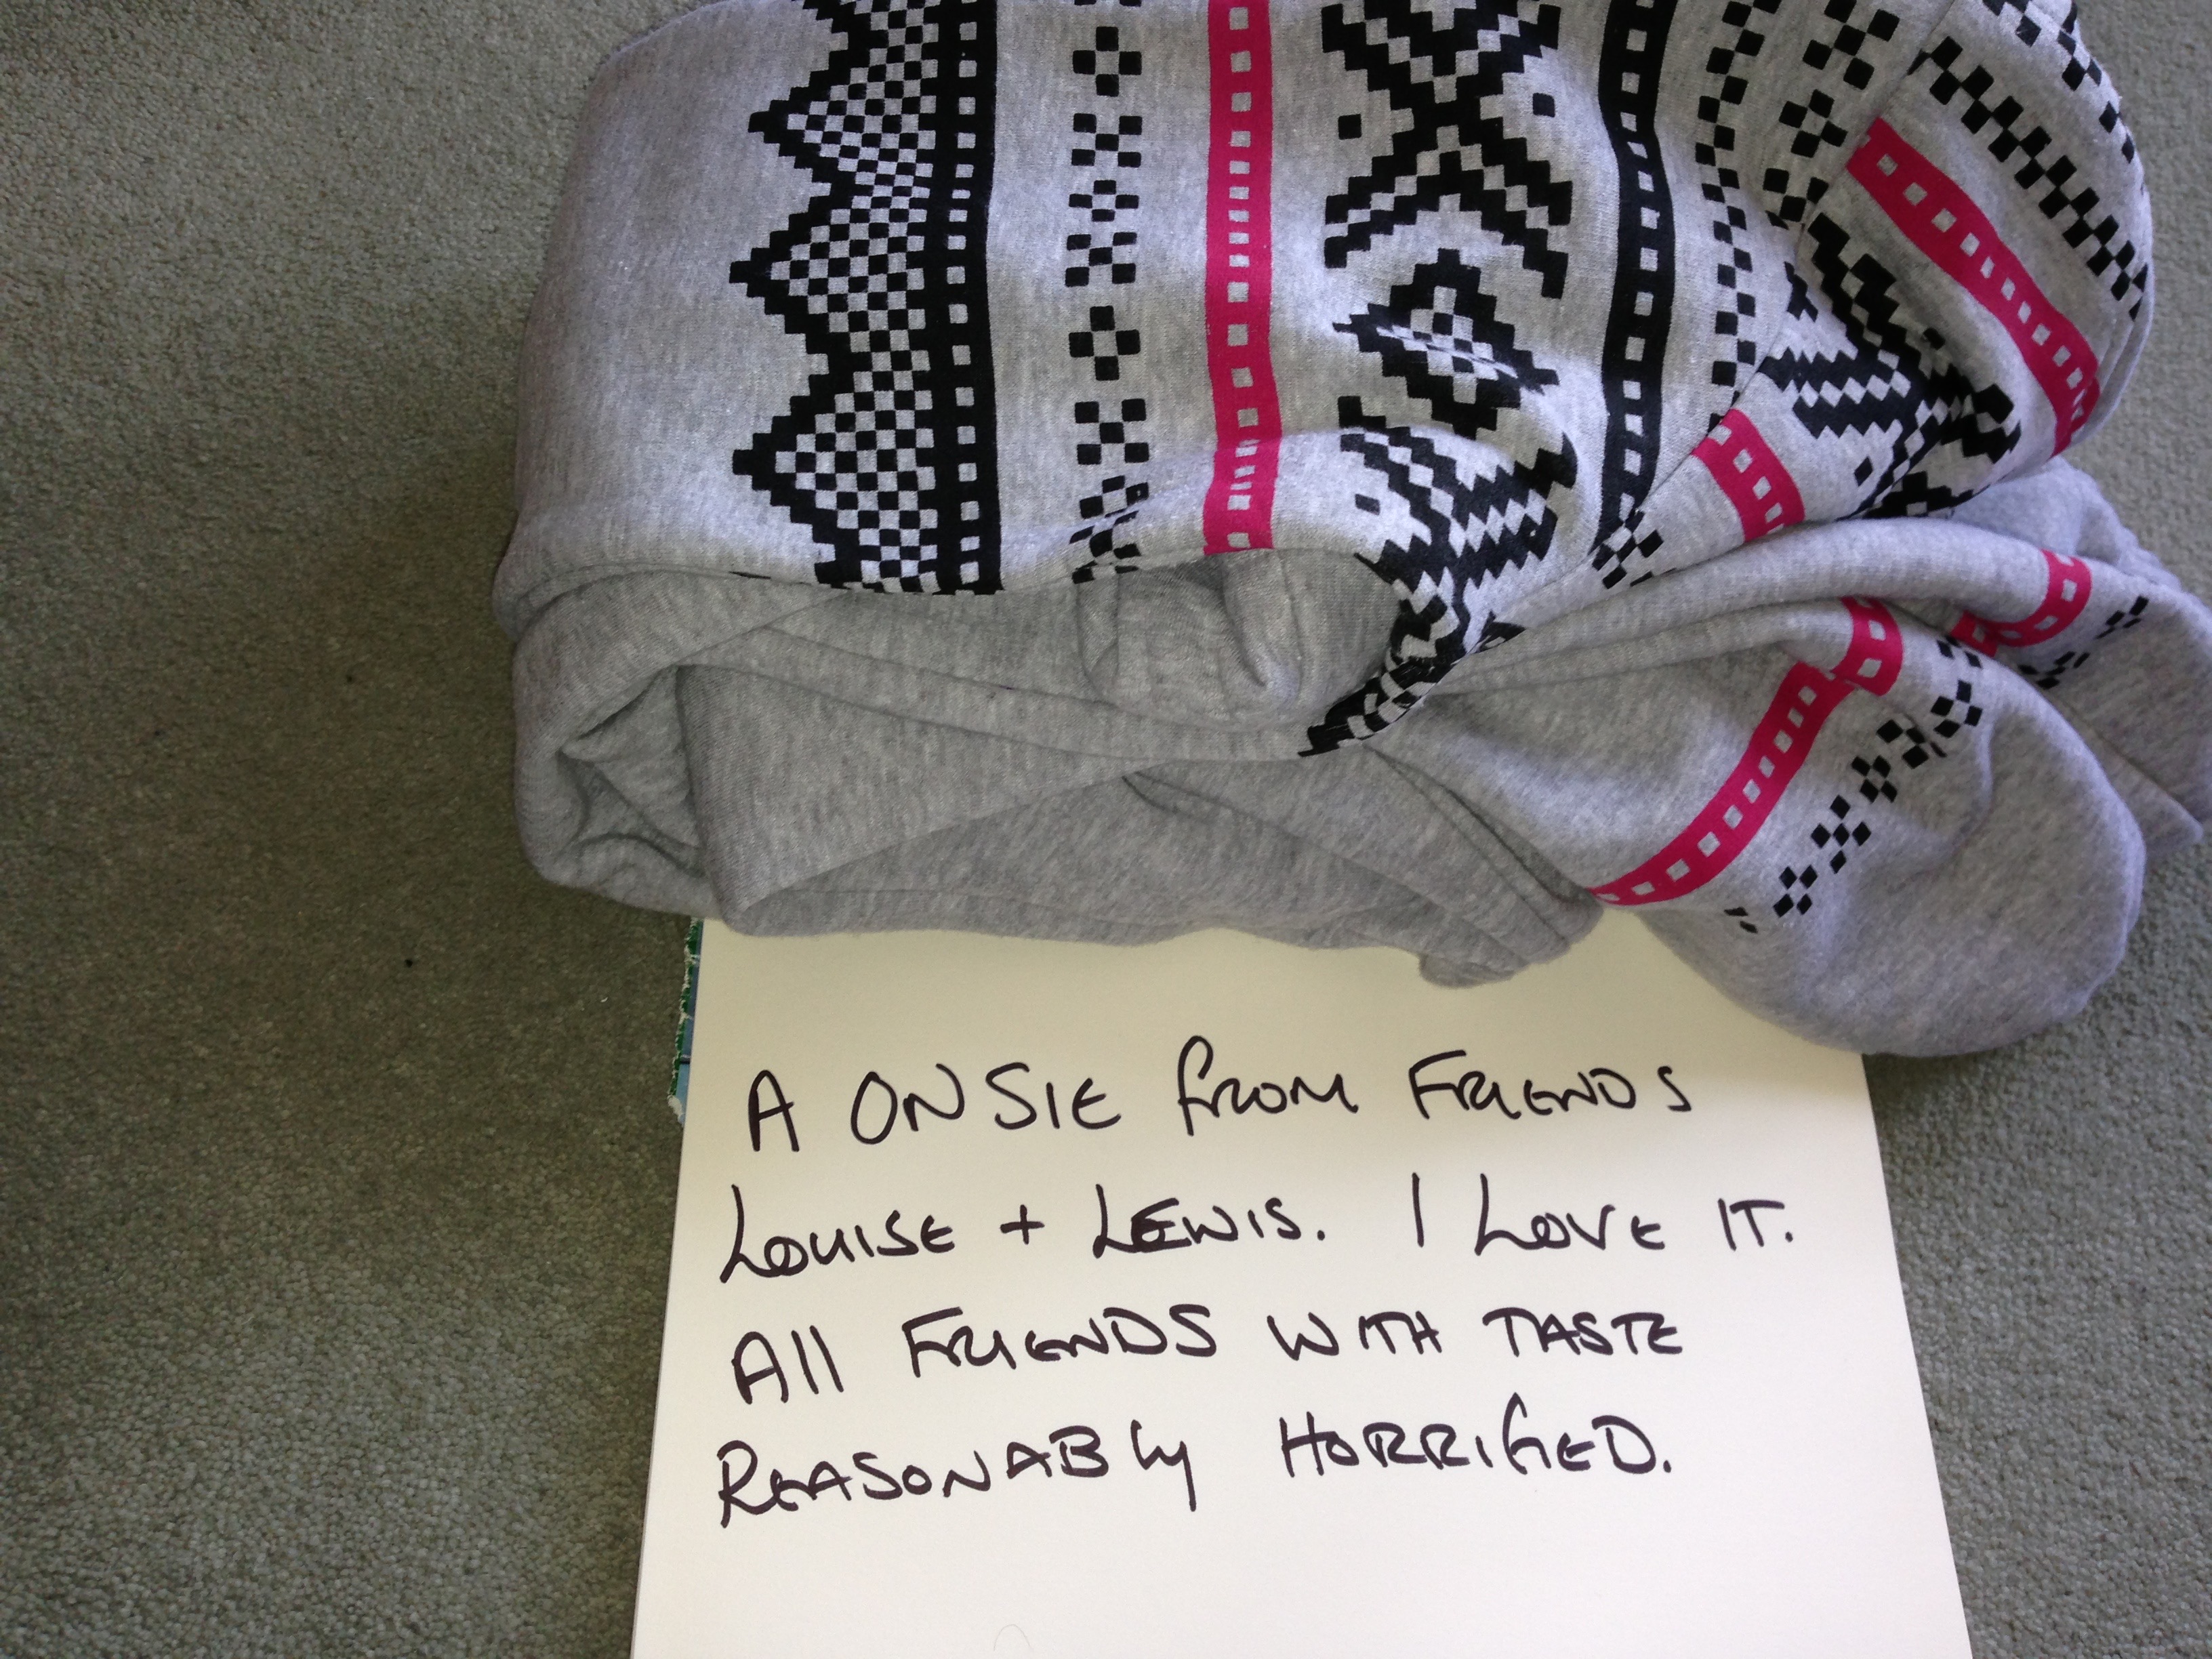 A ONSIE from FRIENDS
LOUISE + LEWIS. I LOVE IT.
All FRIENDS WITH TASTE
REASONABLY HORRIFIED.